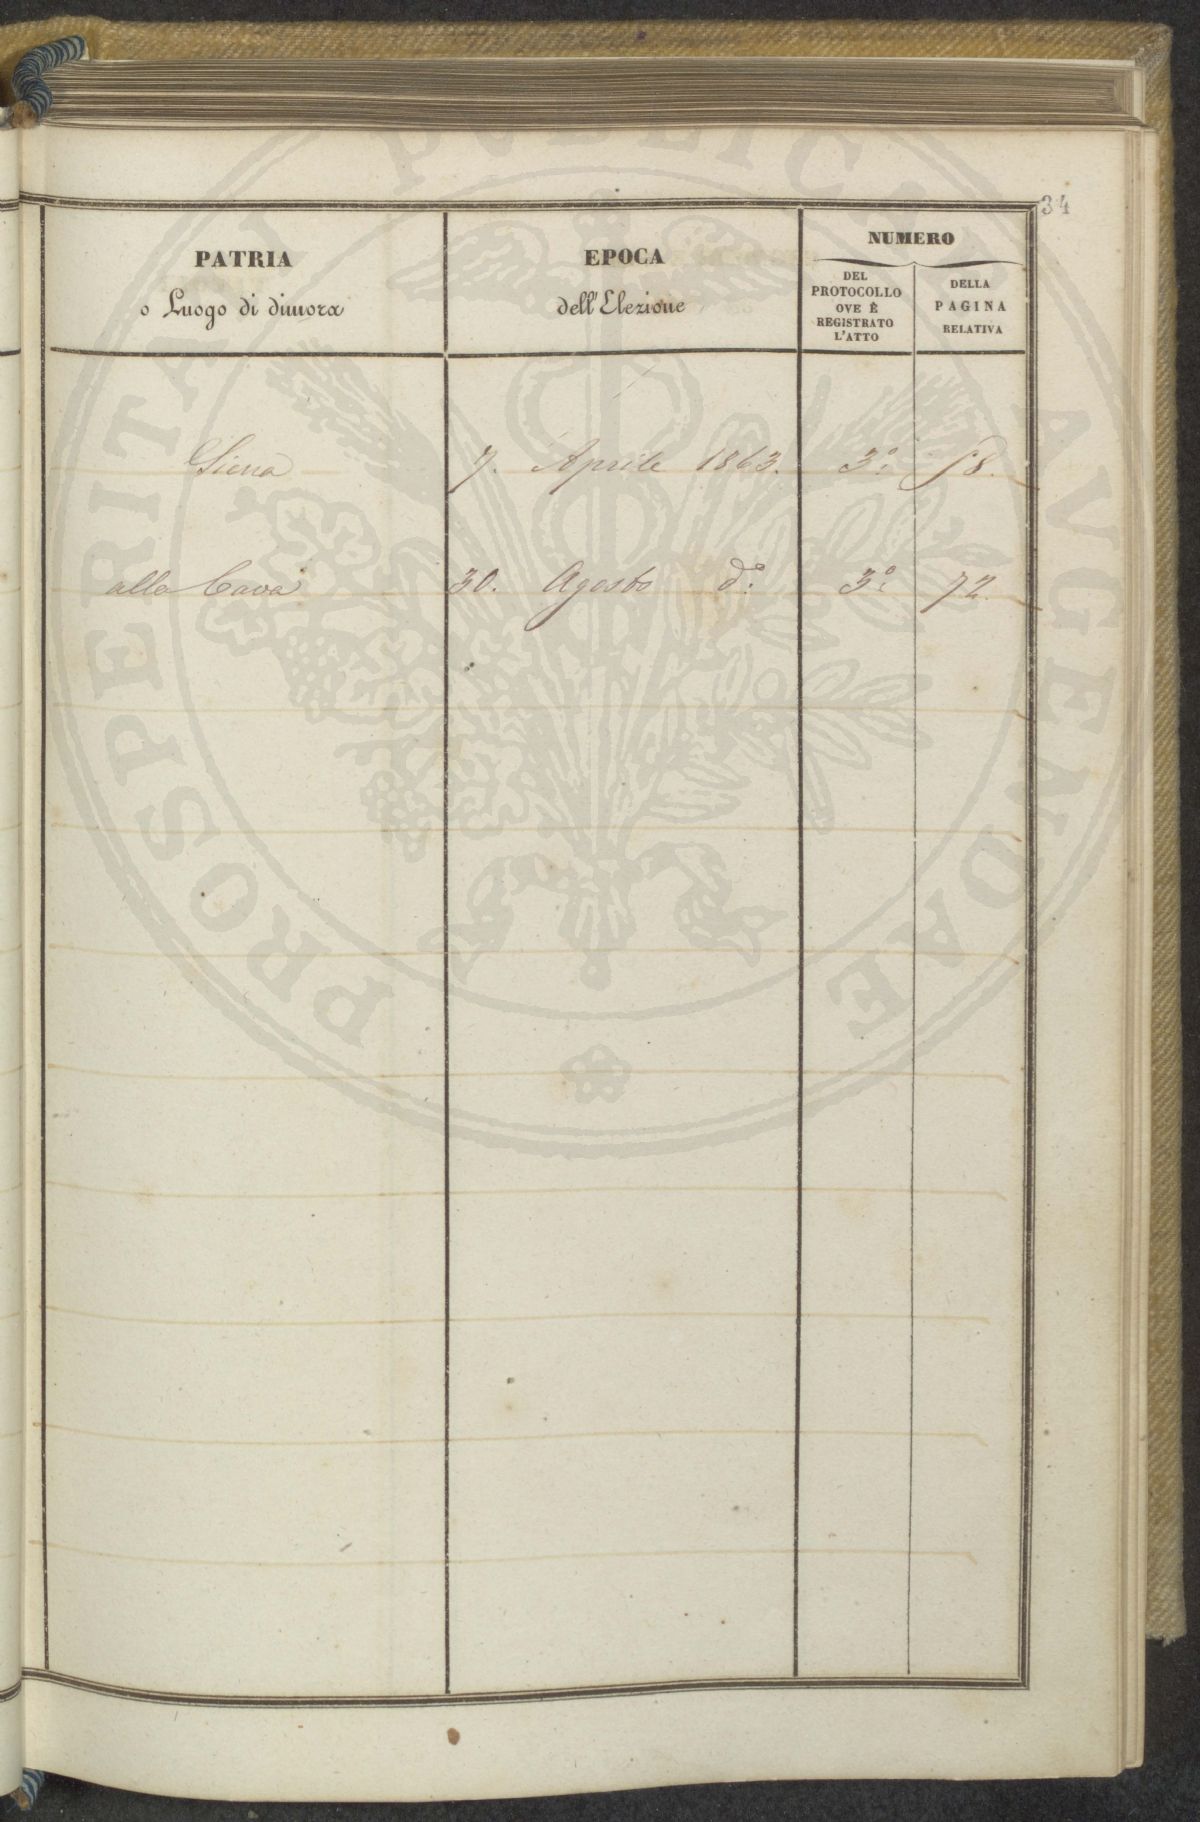 34
PATRIA
o Luogo di dimora
EPOCA
dell'Elezione
NUMERO
DEL
PROTOCOLLO
OVE È
REGISTRATO
L'ATTO
DELLA
PAGINA
RELATIVA
Siena 7. Aprile 1863. 3º
alla Cava 30. Agosto dº 3º 72.
PROSPERITATI PUBLICAE AVGENDAE